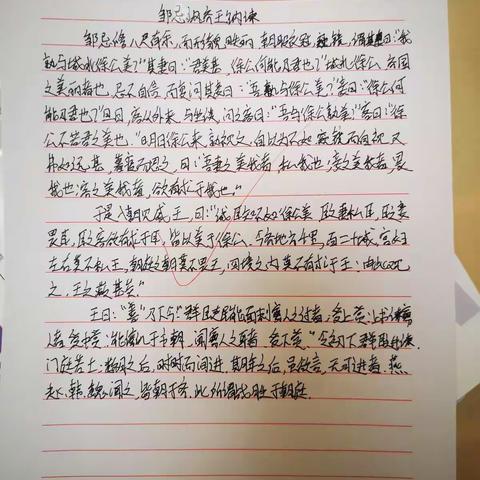 邹忌讽齐王纳谏
邹忌修八尺有余，而形貌昳丽 朝服衣冠 窥镜，谓其妻曰："我
孰与城北徐公美？"其妻曰："君美甚，徐公何能及君也？"城北徐公，齐国
之美丽者也。忌不自信，而复问其妾曰："吾孰与徐公美？"妾曰："徐公何
能及君也？"旦日，客从外来，与坐谈，问之客曰："吾与徐公孰美？"客曰："徐
公不若君之美也。"明日徐公来，孰视之，自以为不如 窥镜而自视，又
弗如远甚，暮寝而思之，曰："吾妻之美我者，私我也；妾之美我者，畏
我也；客之美我者，欲有求于我也。"
于是入朝见威王，曰："诚知不如徐公美，臣妻私臣，臣妾
畏臣，臣客欲有求于臣，皆以美于徐公。今齐地方千里，百二十城，宫妇
左右莫不私王，朝廷之臣莫不畏王，四境之内莫不有求于王：由此观
之，王之蔽甚矣。"
王曰："善"乃下令"群臣吏民能面刺寡人之过者，受上赏；上书谏寡
人者，受中赏；能谤讥于市朝，闻寡人之耳者，受下赏。"令初下，群臣进谏，
门庭若市；数月之后，时时而间进，期年之后，虽欲言，无可进者。燕、
赵、韩、魏闻之，皆朝于齐。此所谓战胜于朝廷。